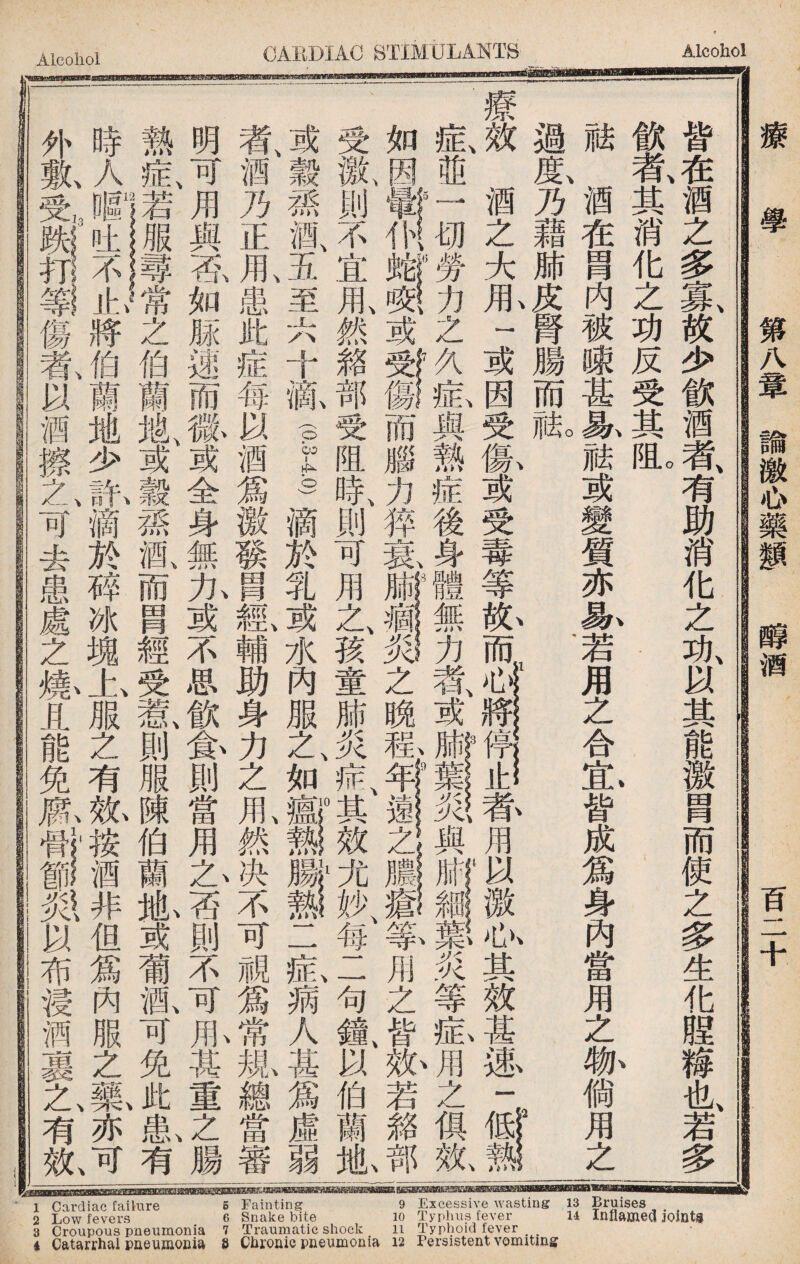 Alcohol
CARDIAC STIMULANTS
Alcohol
療學 第八章 論激心藥類 醇酒 百二十
皆在酒之多寡、故少飲酒者、有助消化之功、以其能激胃而使之多生化腥䊈也、若多
飲者、其消化之功反受其阻。
祛 酒在胃內被㖼甚易、祛或變質亦易、若用之合宜、皆成爲身內當用之物、倘用之
過度、乃藉肺皮腎腸而祛。
療效 酒之大用、一或因受傷、或受毒等故、而心1將停止者、用以激心、其效甚速、一低2熱
症、並一切勞力之久症、與熱症後身體無力者、或肺3葉炎、與肺4細葉炎等症、用之俱效、
如因暈5仆、蛇6咬、或受7傷而腦力猝衰、肺8癰炎之晚程、年9遠之膿瘡等、用之皆效、若絡部
受激、則不宜用、然絡部受阻時、則可用之、孩童肺炎症、其效尤妙、每二句鐘、以伯蘭地、
或穀烝酒、五至六十滴、(0.3-4.0)滴於乳或水內服之、如瘟10熱腸11熱二症、病人甚爲虛弱
者、酒乃正用、患此症每以酒爲激發胃經、輔助身力之用、然决不可視爲常規、總當審
明可用與否、如脉速而微、或全身無力、或不思飲食、則當用之、否則不可用、甚重之腸
熱症、若服尋常之伯蘭地、或穀烝酒、而胃經受惹、則服陳伯蘭地、或葡酒、可免此患、有
時人嘔12吐不止、將伯蘭地少許、滴於碎冰塊上、服之有效、按酒非但爲內服之藥、亦可
外敷、受13跌打等傷者、以酒擦之、可去患處之燒、且能免腐、骨14節炎、以布浸酒裹之、有效、
1 Cardiac failure
2 Low fevers
3 Croupous pneumonia
4 Catarrhal pneumonia
5 Fainting
6 Snake bite
7 Traumatic shock
8 Chronic pneumonia
9 Excessive wasting
10 Typhus fever
11 Typhoid fever
12 Persistent vomiting
13 Bruises
14 Inflamed joints